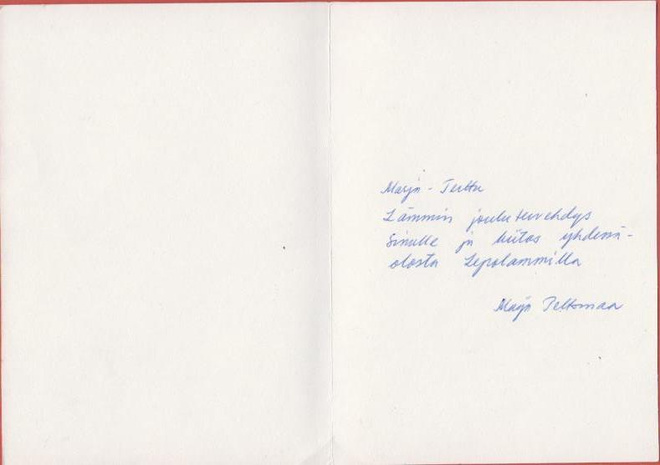 Marja-Terttu
Lämmin joulutervehdys
Sinulle ja kiitos yhdessä-
olosta Lepolammilla
Marja Peltomaa